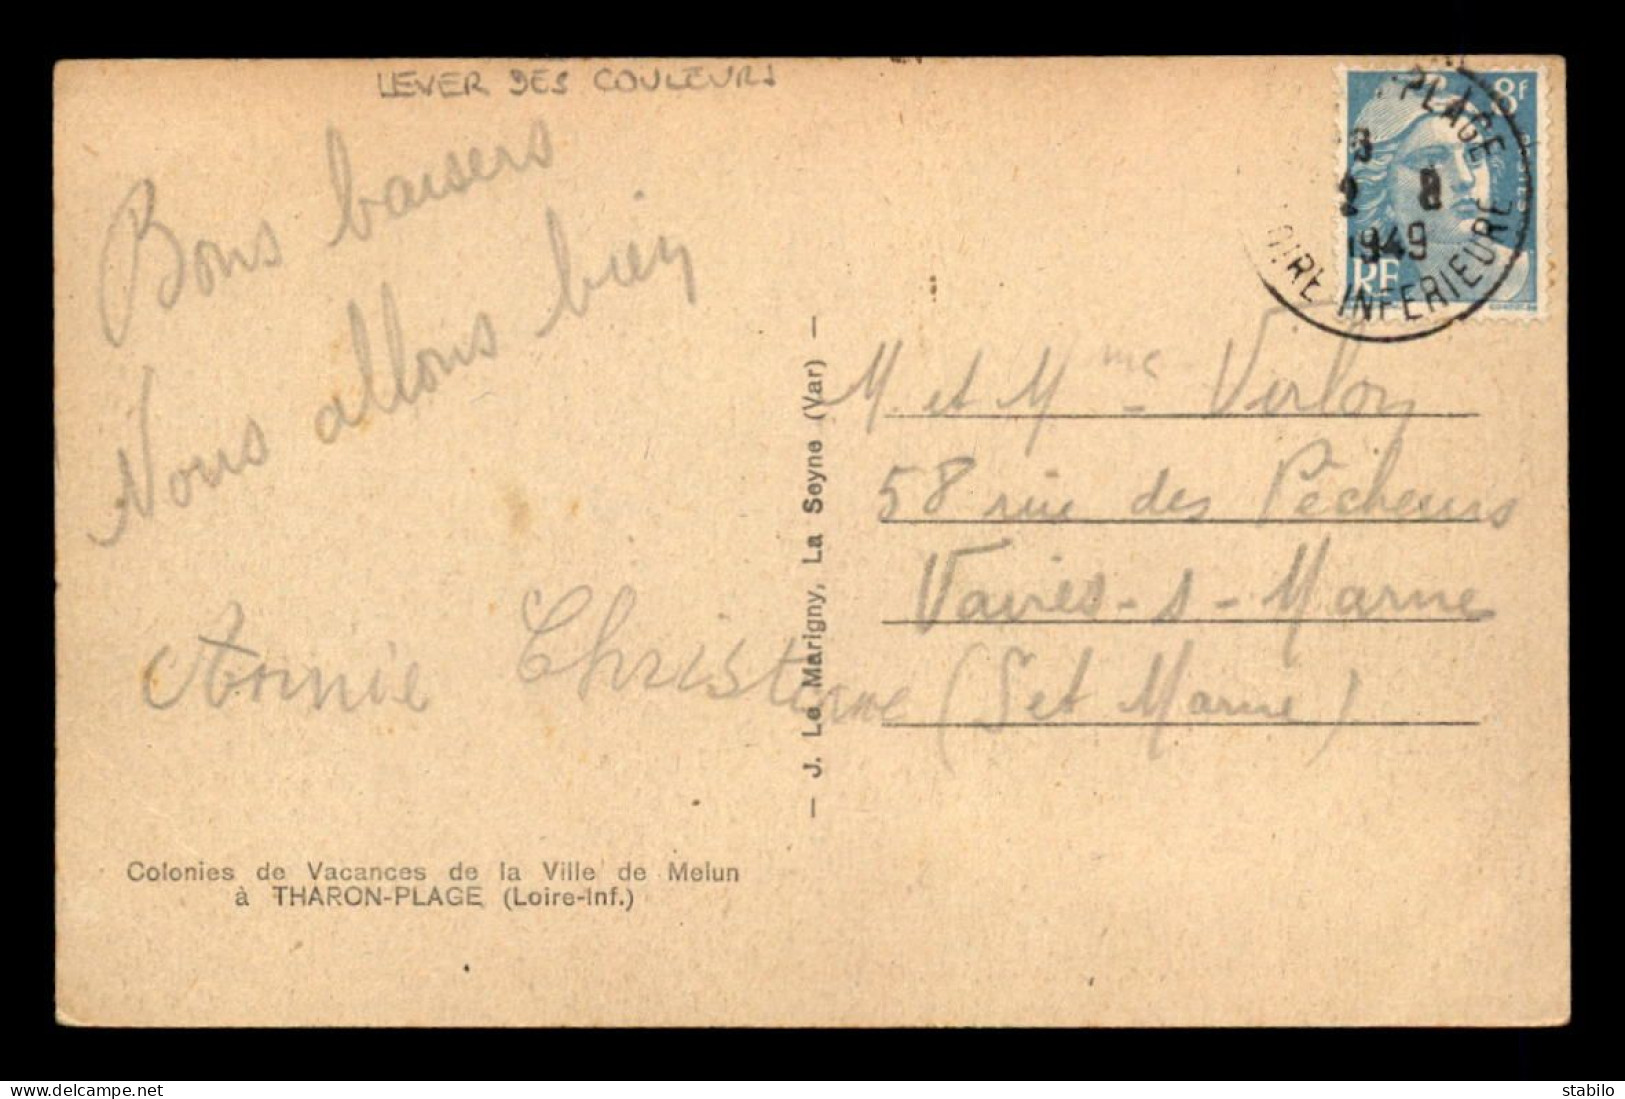 LEVER DES COULEURS
Bons baisers
Nous allons bien
Annie Christiane
Colonies de Vacances de la Ville de Melun
à THARON-PLAGE (Loire-Inf.)
— J. Le Marigny, La Seyne (Var) —
8F
RF
PLAGE
1949
OIRE INFERIEURE
M. et Mme Verlon
58 rue des Pêcheurs
Vaires-s-Marne
(Set Marne)
stabilo
www.delcampe.net